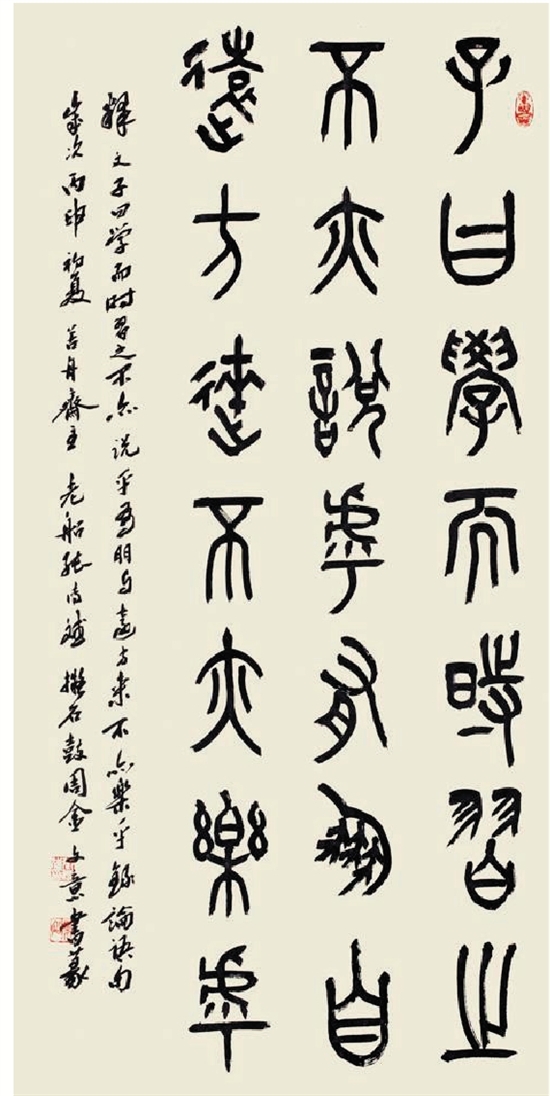 子曰學而時習之
不亦說乎有朋自
遠方徠不亦樂乎
釋文子曰学而时習之不亦说乎有朋自遠方來不亦樂乎錄論語句
歲次丙申初夏善舟齋主老船張詩斌擬石鼓周金文意書篆